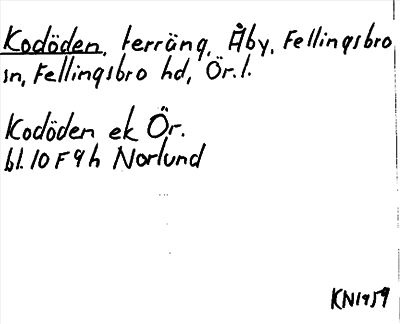 Kodöden, terräng, Åby, Fellingsbro
sn, Fellingsbro hd, Ör. l.
Kodöden ek Ör.
bl. 10 F 9 h Norlund
KN1959